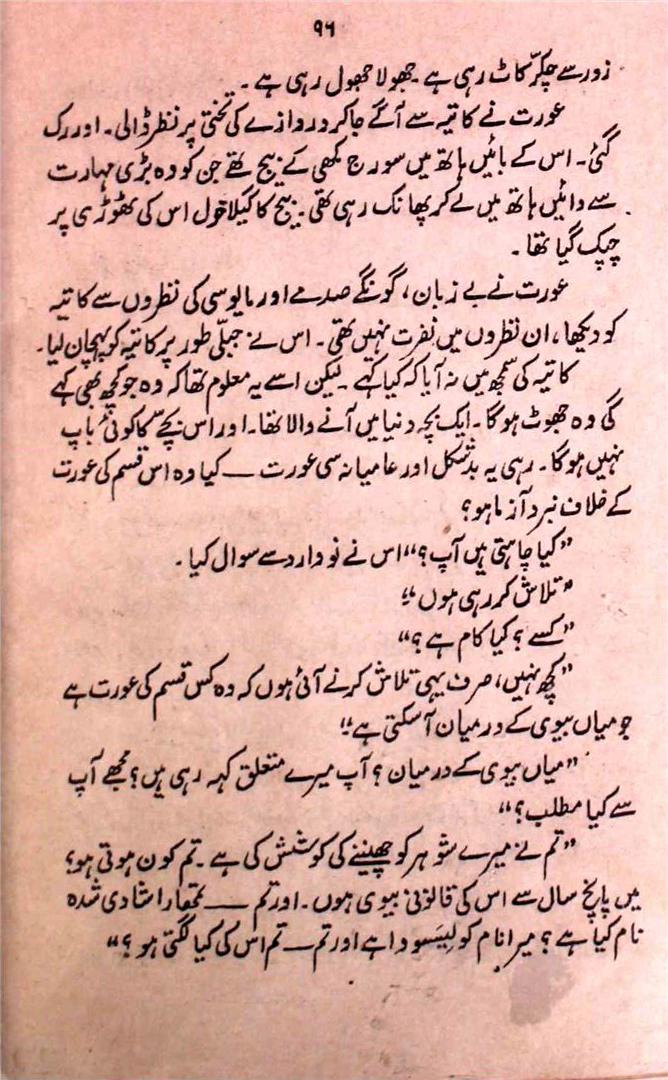 ۹۶
زور سے چکّر کاٹ رہی ہے۔ جھولا جھول رہی ہے۔
عورت نے کاتیہ سے آگے جاکر دروازے کی تختی پر نظر ڈالی۔ اور رک
گئی۔ اس کے بائیں ہاتھ میں سورج مکھی کے بیج تھے جن کو وہ بڑی مہارت
سے دائیں ہاتھ میں لے کر پھانک رہی تھی۔ بیج کا گیلا خول اس کی ٹھوڑی پر
چپک گیا تھا۔
عورت نے بے زبان، گونگے صدمے اور مایوسی کی نظروں سے کاتیہ
کو دیکھا، ان نظروں میں نفرت نہیں تھی۔ اس نے جبلّی طور پر کاتیہ کو پہچان لیا۔
کاتیہ کی سمجھ میں نہ آیا کہ کیا کہے۔ لیکن اسے یہ معلوم تھا کہ وہ جو کچھ بھی کہے
گی وہ جھوٹ ہوگا۔ ایک بچہ دنیا میں آنے والا تھا۔ اور اس بچّے کا کوئی باپ
نہیں ہوگا۔ رہی یہ بدشکل اور عامیانہ سی عورت — کیا وہ اس قسم کی عورت
کے خلاف نبرد آزما ہو؟
”کیا چاہتی ہیں آپ؟“ اس نے نووارد سے سوال کیا۔
”تلاش کر رہی ہوں۔“
”کسے؟ کیا کام ہے؟“
”کچھ نہیں، صرف یہی تلاش کرنے آئی ہوں کہ وہ کس قسم کی عورت ہے
جو میاں بیوی کے درمیان آسکتی ہے۔“
”میاں بیوی کے درمیان؟ آپ میرے متعلق کہہ رہی ہیں؟ مجھے آپ
سے کیا مطلب؟“
”تم نے میرے شوہر کو چھیننے کی کوشش کی ہے۔ تم کون ہوتی ہو؟
میں پانچ سال سے اس کی قانونی بیوی ہوں۔ اور تم — تمھارا شادی شدہ
نام کیا ہے؟ میرا نام کولیسووا ہے اور تم — تم اس کی کیا لگتی ہو؟“